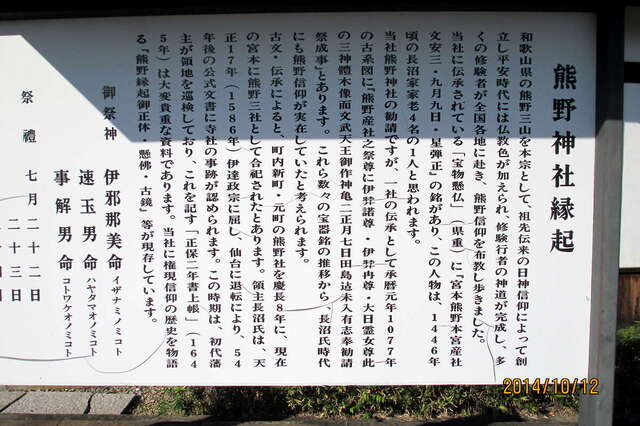 熊野神社縁起
和歌山県の熊野三山を本宗として、祖先伝来の日神信仰によって創
立し平安時代には仏教色が加えられ、修験行者の神道が完成し、多
くの修験者が全国各地に赴き、熊野信仰を布教し歩きました。
当社に伝承されている「宝物懸仏」（県重）に『宮本熊野本宮産社
文安三・九月九日・星弾正』の銘があり、この人物は、1446年
頃の長沼家家老4名の1人と思われます。
当社熊野神社の勧請ですが、一社の伝承として承暦元年1077年
の古系図に『熊野産社之祭尊に伊弉諾尊・伊弉冉尊・大日霊女尊此
の三神體木像而文武天王御作神亀二正月七日田島迠未入有志奉勧請
祭成事』とあります。これら数々の宝器銘の推移から、長沼氏時代
にも熊野信仰が実在していたと考えられます。
古文・伝承によると、町内新町・元町の熊野社を慶長8年に、現在
の宮本に熊野三社として合祀されたとあります。領主長沼氏は、天
正17年（1586年）伊達政宗に屈し、仙台に退転により、54
年後の公式文書に寺社の事跡が認められます。この時期は、初代藩
主が領地を巡検しており、これを記す「正保二年書上帳」（164
5年）は大変貴重な資料であります。当社に権現信仰の歴史を物語
る「熊野縁起御正体・懸佛・古鏡」等が現存しています。
御祭神 伊邪那美命 イザナミノミコト
速玉男命 ハヤタマオノミコト
事解男命 コトワケオノミコト
祭禮 七月二十二日
二十三日
2014/10/12